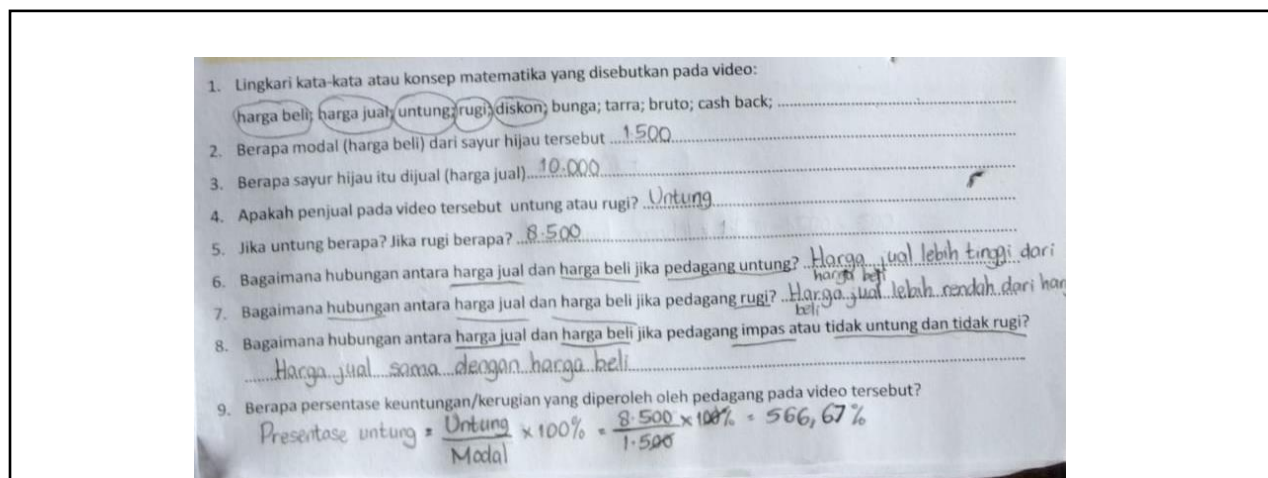 1. Lingkari kata-kata atau konsep matematika yang disebutkan pada video:
harga beli; harga jual; untung; rugi; diskon; bunga; tarra; bruto; cash back; ........
2. Berapa modal (harga beli) dari sayur hijau tersebut ...1.500...
3. Berapa sayur hijau itu dijual (harga jual)...10.000...
4. Apakah penjual pada video tersebut untung atau rugi? ...Untung...
5. Jika untung berapa? Jika rugi berapa? ...8.500...
6. Bagaimana hubungan antara harga jual dan harga beli jika pedagang untung? Harga jual lebih tinggi dari
harga beli
7. Bagaimana hubungan antara harga jual dan harga beli jika pedagang rugi? Harga jual lebih rendah dari har
beli
8. Bagaimana hubungan antara harga jual dan harga beli jika pedagang impas atau tidak untung dan tidak rugi?
Harga jual sama dengan harga beli
9. Berapa persentase keuntungan/kerugian yang diperoleh oleh pedagang pada video tersebut?
Presentase untung = Untung/Modal × 100% = 8.500/1.500 × 100% = 566,67%